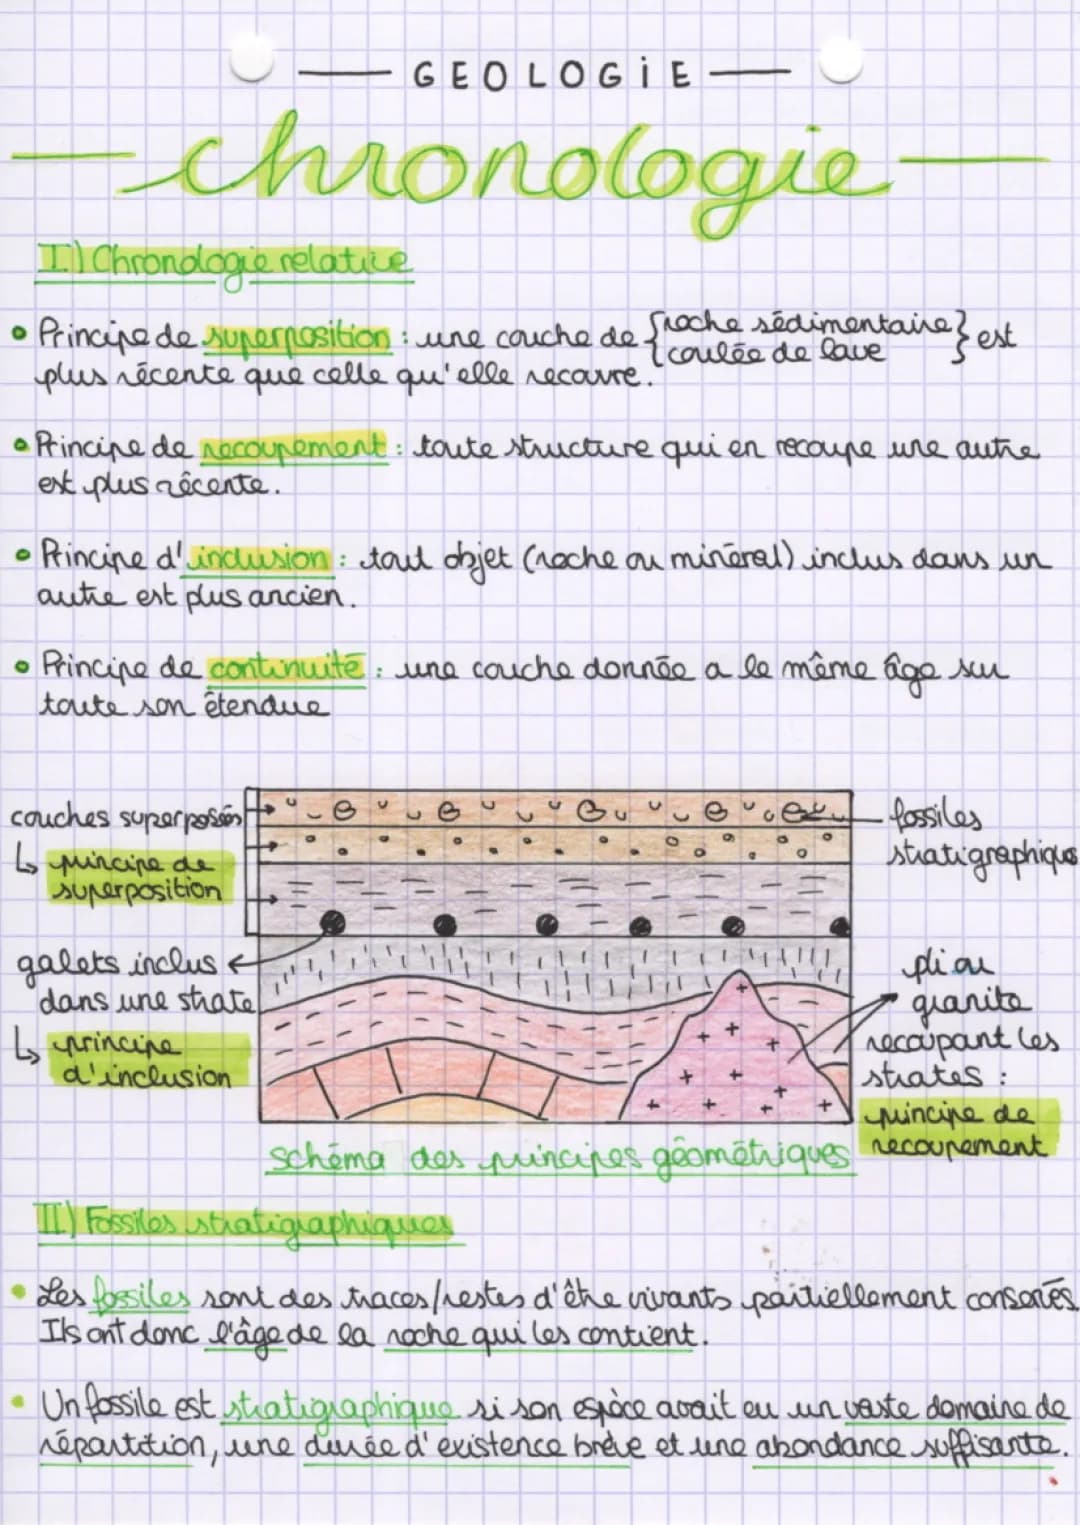 GEOLOGIE
chronologie
I) Chronologie relative
• Principe de superposition : une couche de {roche sédimentaire} est
{coulée de lave}
plus récente que celle qu'elle recouvre.
• Principe de recoupement : toute structure qui en recoupe une autre
est plus récente.
• Principe d'inclusion : tout objet (roche ou minéral) inclus dans un
autre est plus ancien.
• Principe de continuité : une couche donnée a le même âge sur
toute son étendue
couches superposés
↳ principe de
superposition
galets inclus
dans une strate
↳ principe
d'inclusion
fossiles
stratigraphiques
pli ou
granite
recoupant les
strates :
principe de
recoupement
schéma des principes géométriques
II) Fossiles stratigraphiques
• Les fossiles sont des traces/restes d'être vivants partiellement conservés.
Ils ont donc l'âge de la roche qui les contient.
• Un fossile est stratigraphique si son espèce avait eu un vaste domaine de
répartition, une durée d'existence brève et une abondance suffisante.